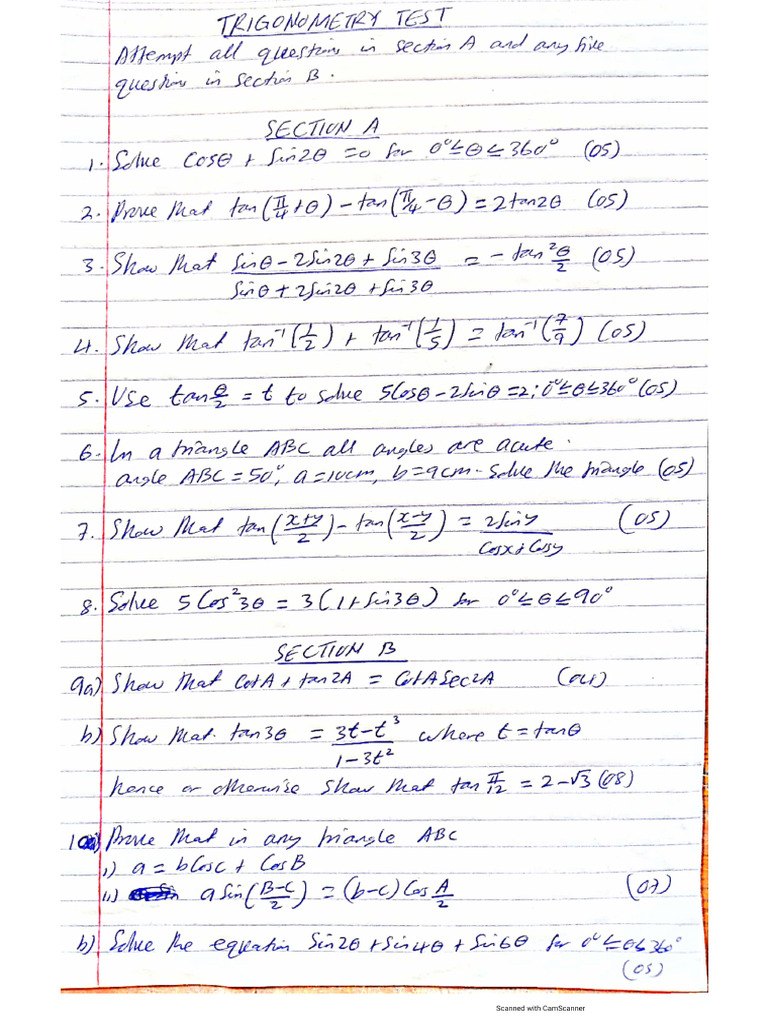 TRIGONOMETRY TEST
Attempt all questions in section A and any five
questions in section B.
SECTION A
1. Solve cosθ + sin2θ = 0 for 0° ≤ θ ≤ 360° (05)
2. Prove that tan(π/4 + θ) - tan(π/4 - θ) = 2tan2θ (05)
3. Show that (sinθ - 2sin2θ + sin3θ)/(sinθ + 2sin2θ + sin3θ) = -tan²θ/2 (05)
4. Show that tan⁻¹(1/2) + tan⁻¹(1/5) = tan⁻¹(7/9) (05)
5. Use tanθ/2 = t to solve 5cosθ - 2sinθ = 2; 0° ≤ θ ≤ 360° (05)
6. In a triangle ABC all angles are acute.
angle ABC = 50°, a = 10cm, b = 9cm. Solve the triangle (05)
7. Show that tan((x+y)/2) - tan((x-y)/2) = 2siny/(cosx + cosy) (05)
8. Solve 5cos²3θ = 3(1 + sin3θ) for 0° ≤ θ ≤ 90°
SECTION B
9a) Show that cotA + tan2A = cotAsec2A (04)
b) Show that tan3θ = (3t - t³)/(1 - 3t²) where t = tanθ
hence or otherwise show that tan π/12 = 2 - √3 (08)
10a) Prove that in any triangle ABC
i) a = bcosc + cosB
ii) a sin((B-C)/2) = (b-c)cos A/2 (07)
b) Solve the equation sin2θ + sin4θ + sin6θ for 0° ≤ θ ≤ 360°
(05)
Scanned with CamScanner